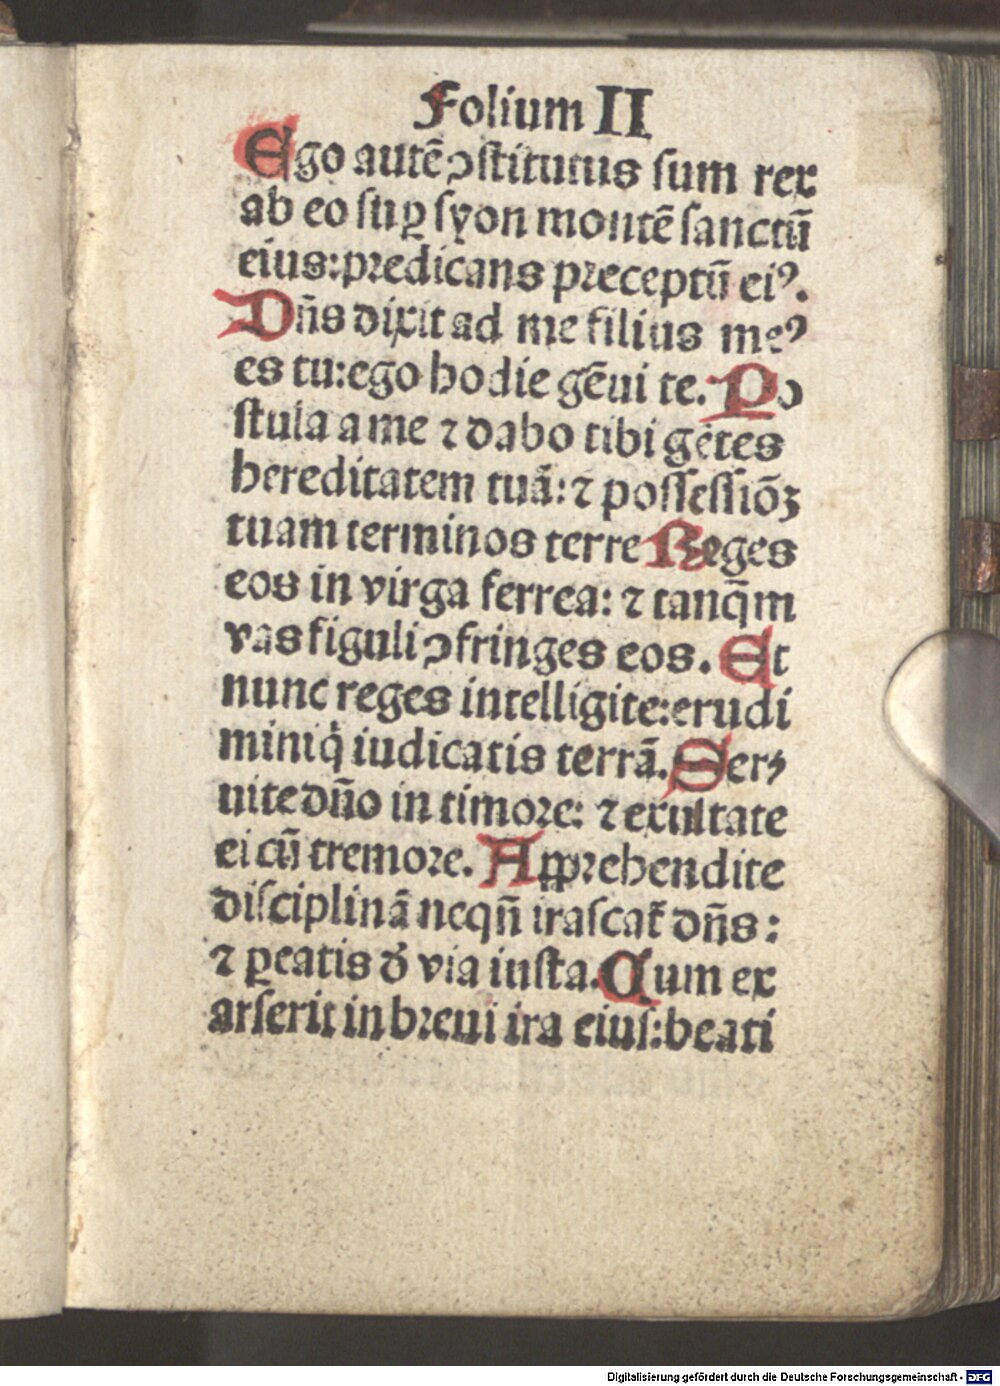 Folium II
Ego autē ↄſtitutus ſum rex
ab eo ſuꝑ ſyon montē ſanctū
eius:predicans preceptū eiꝰ.
Dn̄s dixit ad me filius meꝰ
es tu:ego hodie gēui te. Po
ſtula a me ⁊ dabo tibi gētes
hereditatem tuā: ⁊ poſſeſſiōꝫ
tuam terminos terre Reges
eos in virga ferrea: ⁊ tanq̄m
vas figuli ↄfringes eos. Et
nunc reges intelligite:erudi
miniq̇ iudicatis terrā. Ser⸗
uite dn̄o in timore: ⁊ exultate
ei cū tremore. Apprehendite
diſciplinā nequn̄ iraſcat᷑ dn̄s:
⁊ ꝑeatis ď via iuſta. Cum ex
arſerit in breui ira eiuſ:beati
Digitalisierung gefördert durch die Deutsche Forschungsgemeinschaft - DFG